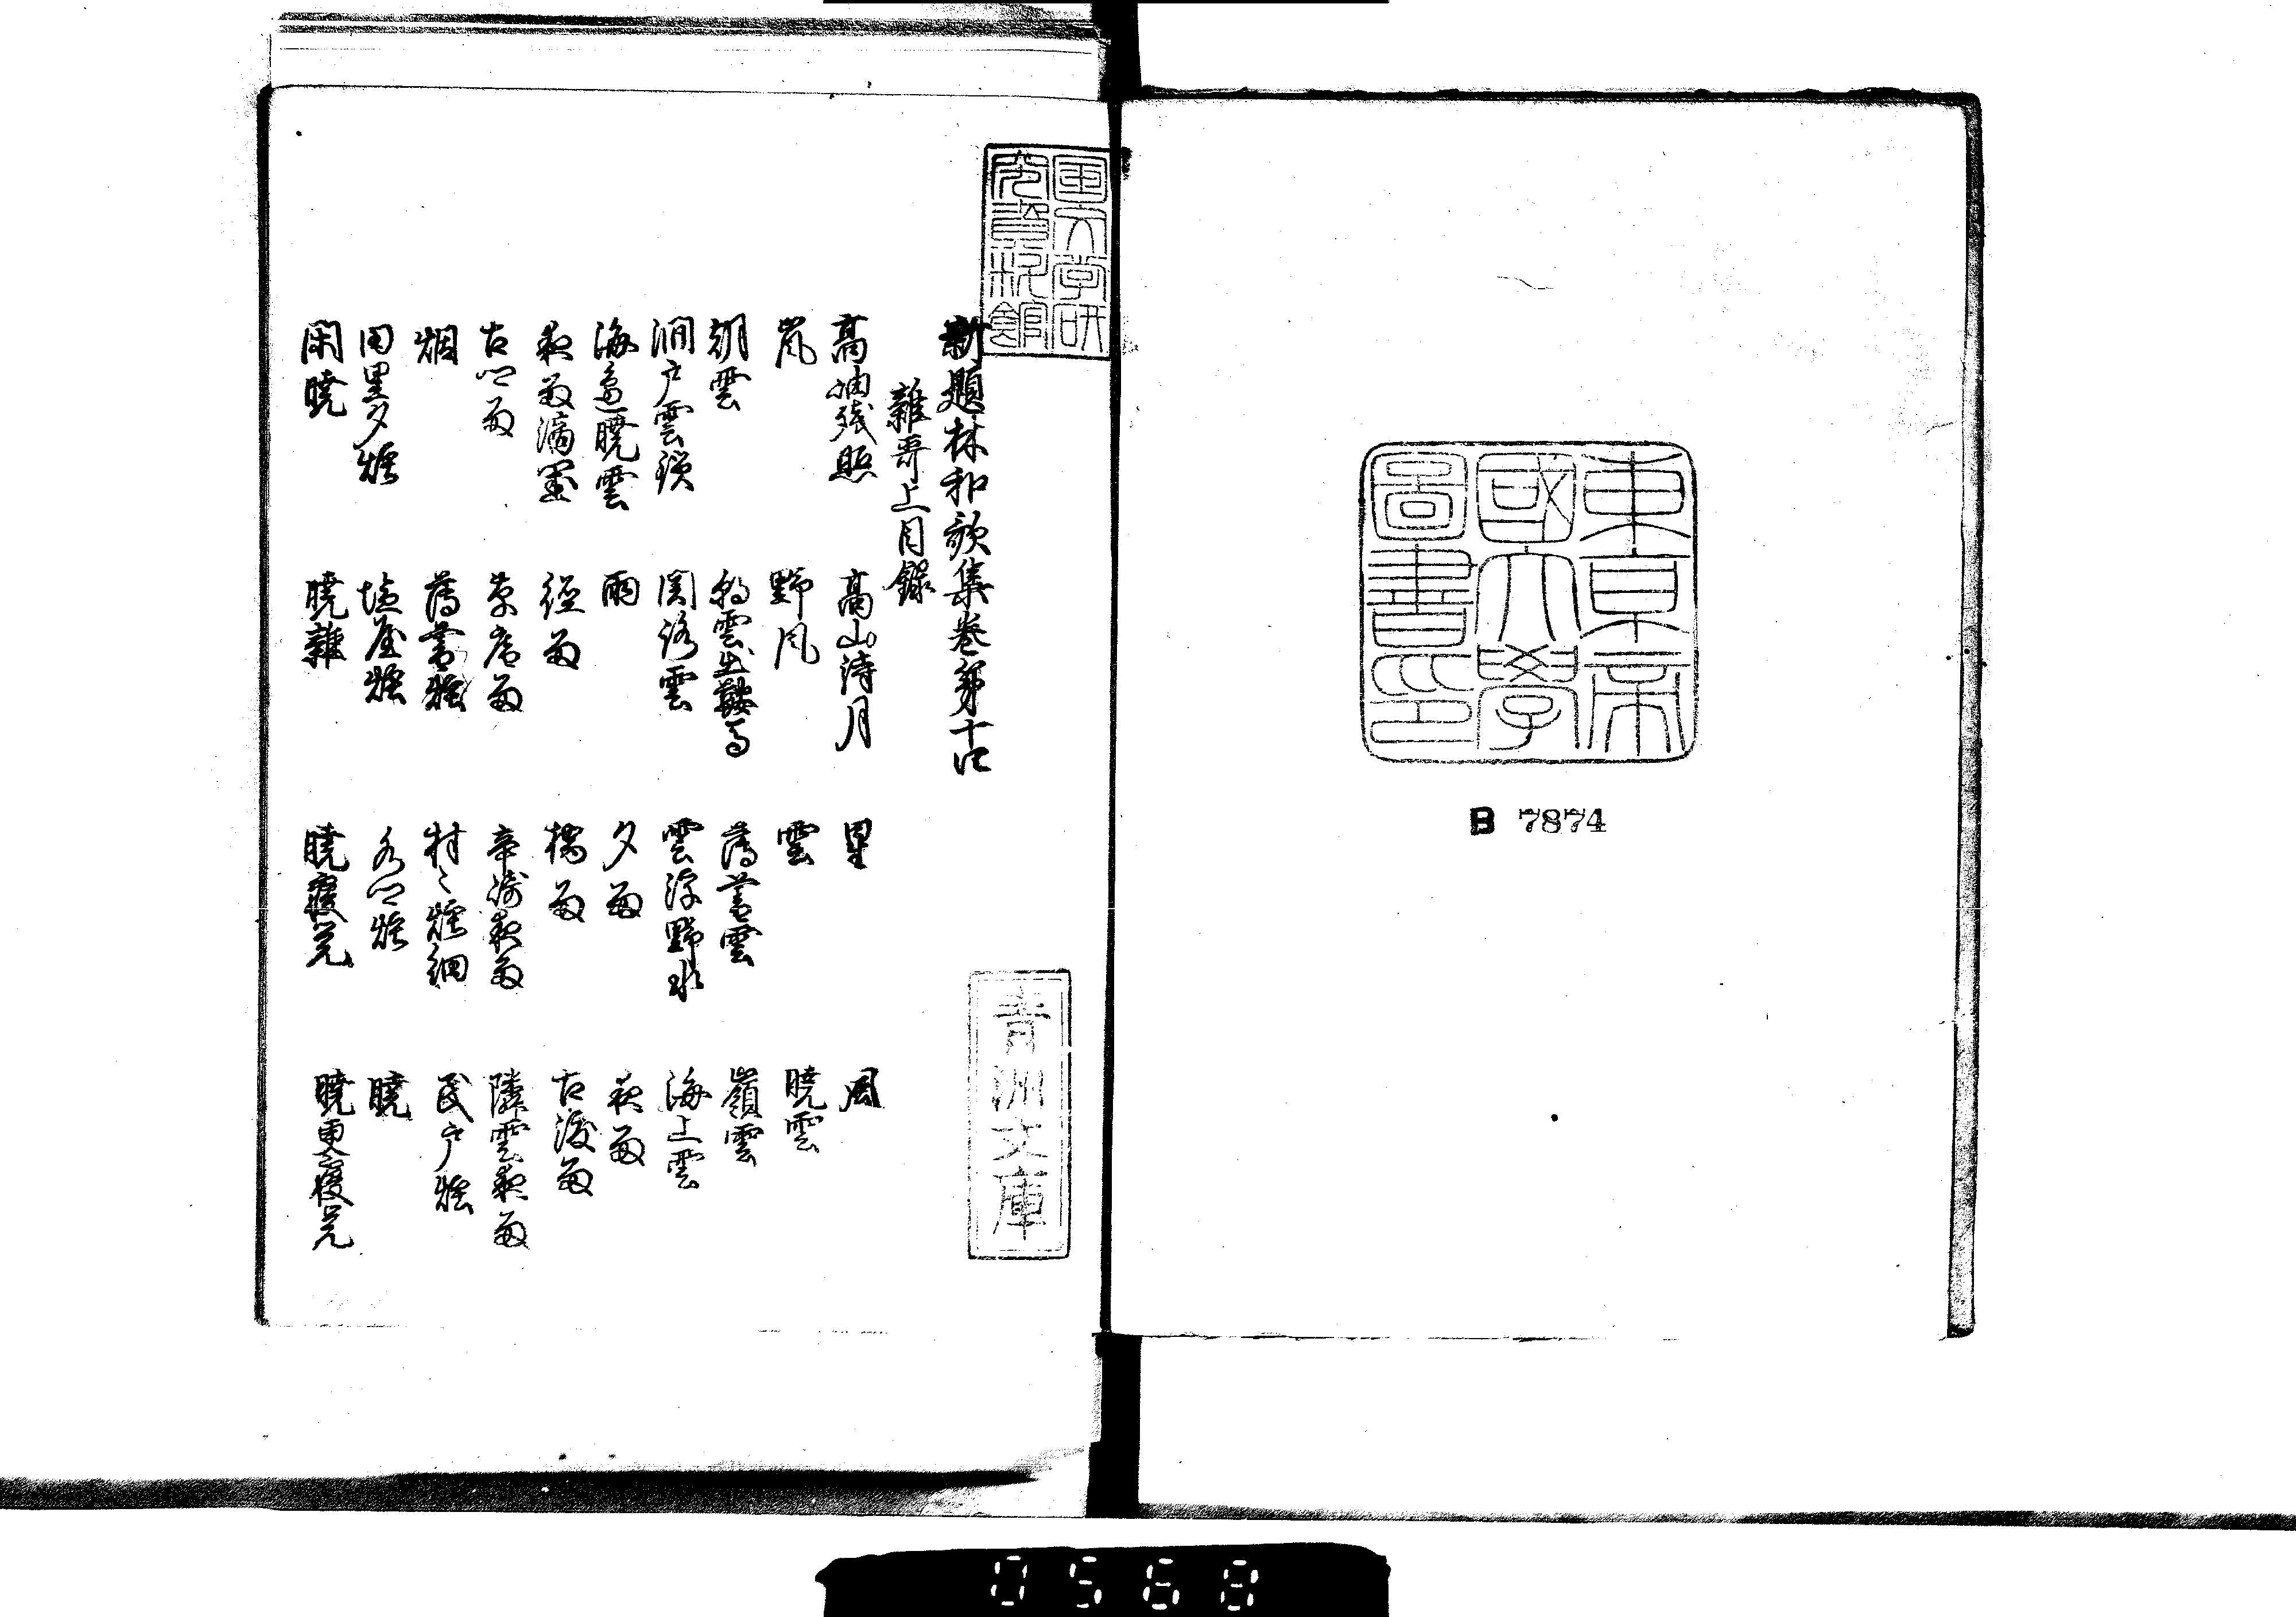 東京帝
國大學
圖書印
B 7874
国文学研
究資料館
新題林和歌集巻第十四
雜哥上目錄
高岫残照 高山待月 星 風
嵐 野風 雲 暁雲
朝雲 雲出鞍馬 薄暮雲 嶺雲
澗戸雲鎖 関路雲 雲浮野水 海上雲
海邉暁雲 雨 夕雨 夜雨
夜雨滴 径雨 橋雨 古渡雨
古雨 草庵雨 幸崎夜雨 隣雲夜雨
烟 薄暮煙 村々煙細 民戸煙
田里夕煙 塩屋煙 煙 暁
閑暁 暁雜 暁寝覚 暁更寝覚
青洲文庫
0568